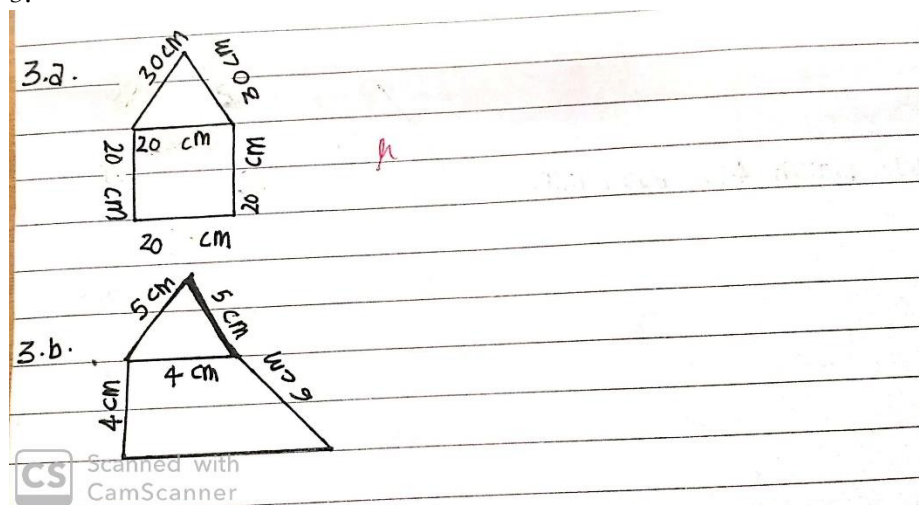 3.a.
30 cm
30 cm
20 cm
20 cm
20 cm
20 cm
3.b.
5 cm
5 cm
4 cm
6 cm
4 cm
CS Scanned with
CamScanner